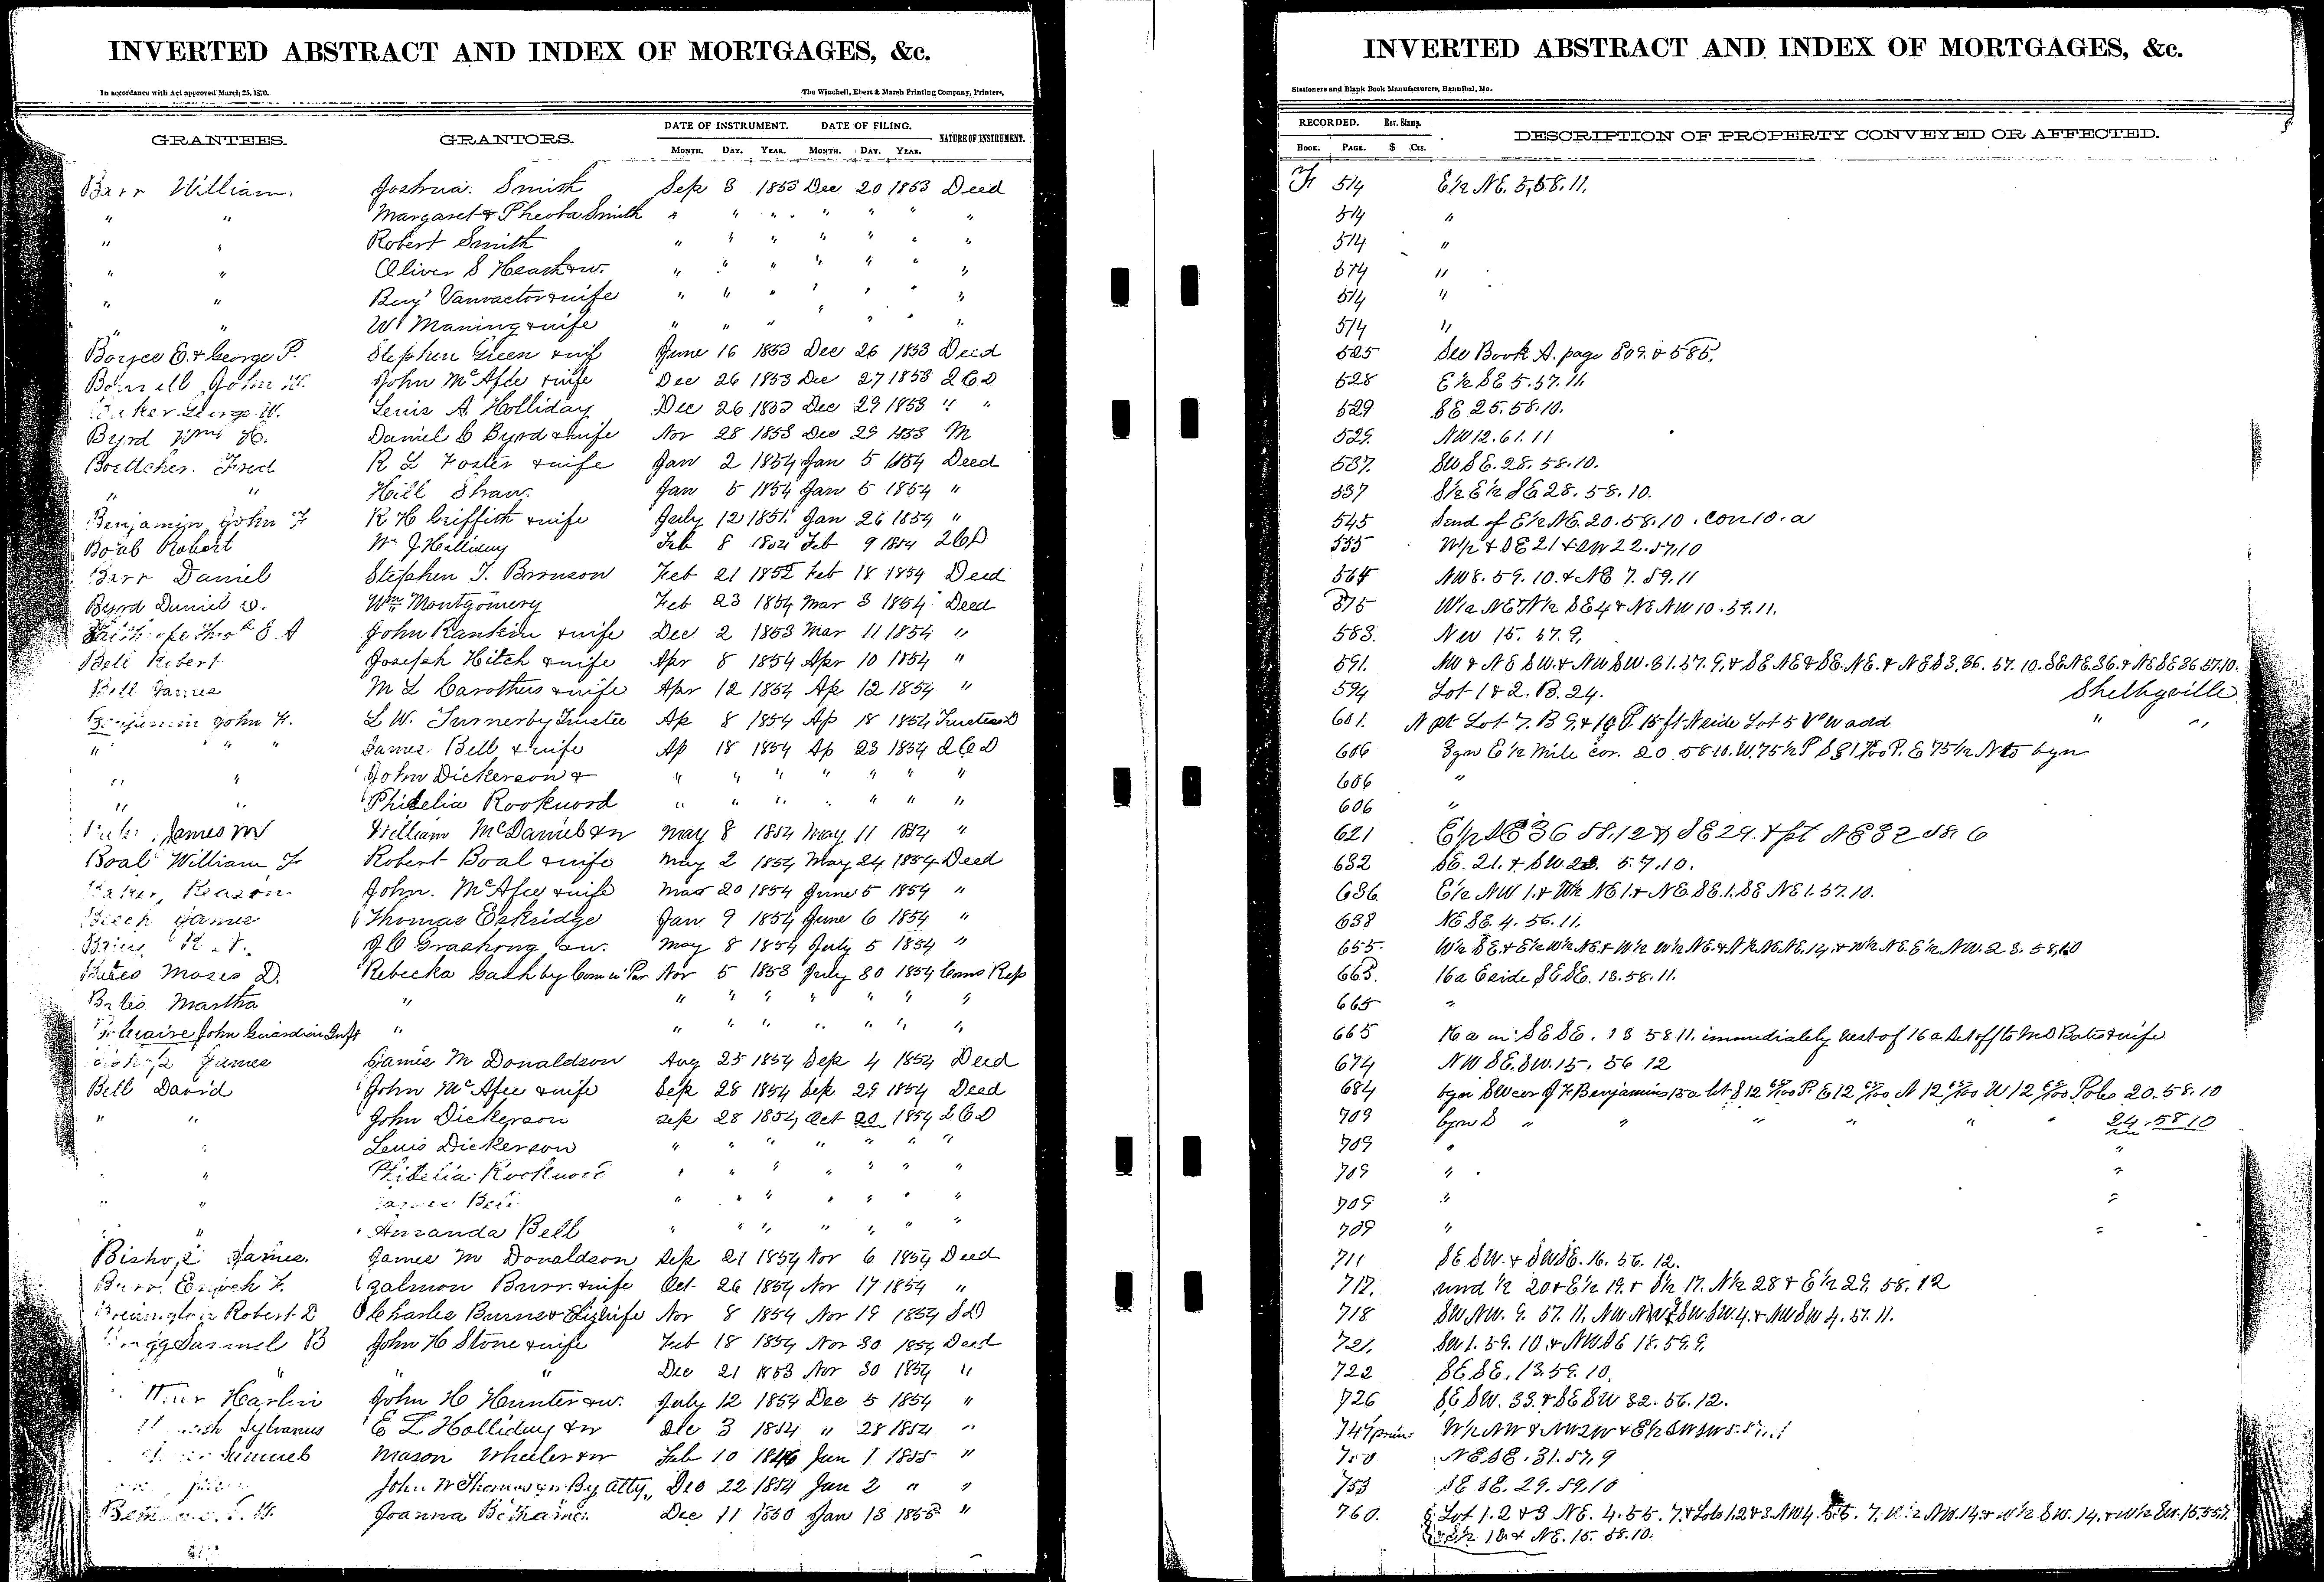 INVERTED ABSTRACT AND INDEX OF MORTGAGES, &c.
In accordance with Act approved March 25, 1870. The Winchell, Ebert & Marsh Printing Company, Printers,
DATE OF INSTRUMENT. DATE OF FILING.
GRANTEES. GRANTORS. NATURE OF INSTRUMENT.
MONTH. DAY. YEAR. MONTH. DAY. YEAR.
Barr William. Joshua Smith Sep 3 1853 Dec 20 1853 Deed
" " Margaret & Pheoba Smith " " " " " " "
" " Robert Smith " " " " " " "
" " Oliver S Heach & w. " " " " " " "
" " Benj Vanvactor & wife " " " " " " "
" " Wm Maning & wife " " " " " " "
Boyce E. & George P. Stephen Green & wife June 16 1853 Dec 26 1853 Deed
John W. John McAfee & wife Dec 26 1853 Dec 27 1853 2 C D
George W. Lewis A. Holliday Dec 26 1853 Dec 29 1853 " "
Byrd Wm H. Daniel C Byrd & wife Nov 28 1853 Dec 29 1853 M
Boettcher. Fred R L Foster & wife Jan 2 1854 Jan 5 1854 Deed
" " Hill Shaw. Jan 5 1854 Jan 5 1854 "
Benjamin John F R H Griffith & wife July 12 1851 Jan 26 1854 "
Boal Robert Wm J Holliday Feb 8 1854 Feb 9 1854 2 C D
Barr Daniel Stephen T. Bronson Feb 21 1852 Feb 18 1854 Deed
Byrd Daniel Wm Montgomery Feb 23 1854 Mar 3 1854 Deed
John Rankin & wife Dec 2 1853 Mar 11 1854 "
Bell Robert Joseph Hitch & wife Apr 8 1854 Apr 10 1854 "
Bell James M L Carothers & wife Apr 12 1854 Ap 12 1854 "
Benjamin John F. L W. Turner by Trustee Ap 8 1854 Ap 18 1854 Trustees D
" " " James Bell & wife Ap 18 1854 Ap 23 1854 2 C D
" " John Dickerson & " " " " " " "
" " Phidelia Rookwood " " " " " " "
James M William McDaniel & w May 8 1854 May 11 1854 "
Boal William F Robert Boal & wife May 2 1854 May 24 1854 Deed
Baker, Reason John. McAfee & wife Mar 20 1854 June 5 1854 "
James Thomas Eskridge Jan 9 1854 June 6 1854 "
J C & w. May 8 1854 July 5 1854 "
Bates Moses D. Rebecka Gash by Com in Par Nov 5 1853 July 30 1854 Coms Rep
Bates Martha " " " " " " " "
John Guardian " " " " " " " "
James James M Donaldson Aug 25 1854 Sep 4 1854 Deed
Bell David John McAfee & wife Sep 28 1854 Sep 29 1854 Deed
" " John Dickerson Sep 28 1854 Oct 20 1854 2 C D
" Lewis Dickerson " " " " " " "
" Phidelia Rookwood " " " " " " "
" " James Bell " " " " " " "
" Amanda Bell " " " " " " "
Bishop James. James M Donaldson Sep 21 1854 Nov 6 1854 Deed
Burr. Enoch F. Zalmon Burr. & wife Oct 26 1854 Nov 17 1854 "
Robert D Charles Burner & Eliz wife Nov 8 1854 Nov 19 1854 2 D
Samuel B John H Stone & wife Feb 18 1854 Nov 30 1854 Deed
" " " Dec 21 1853 Nov 30 1854 "
Harlin John H Hunter & w. July 12 1854 Dec 5 1854 "
Sylvanus E L Holliday & w Dec 3 1854 " 28 1854 "
Samuel Mason Wheeler & w Feb 10 1846 Jan 1 1855 "
John W Thomas & w By Atty, Dec 22 1854 Jan 2 " "
Joanna Dec 11 1850 Jan 13 1855 "
INVERTED ABSTRACT AND INDEX OF MORTGAGES, &c.
Stationers and Blank Book Manufacturers, Hannibal, Mo.
RECORDED. Rev. Stamp.
DESCRIPTION OF PROPERTY CONVEYED OR AFFECTED.
BOOK. PAGE. $ Cts.
F 514 E½ NE. 5, 58. 11.
514 "
514 "
514 "
514 "
514 "
525 See Book A. page 509. & 585.
528 E½ SE 5. 57. 11.
529 SE 25. 58. 10.
529. NW 12. 61. 11
537. SW SE. 28. 58. 10.
537 S½ E½ SE 28. 58. 10.
545 S end of E½ NE. 20. 58. 10. con 10. a
555 W½ & SE 21 & SW 22. 57. 10
564 NW 8. 59. 10. & NE 7. 59. 11
575 W½ NE & N½ SE 4 & NE NW 10. 59. 11.
583. NW 15. 57. 9.
591. NW & NE SW. & NW SW. 31. 57. 9. & SE NE & SE. NE. & NE S 3. 36. 57. 10. SE NE. 36. & NE SE 36 57. 10.
594 Lot 1 & 2. B. 24. Shelbyville
601. N pt Lot 7. B 9. & 10 P. 15 ft N side Lot 5 V W add " "
606 Bgn E½ Mile cor. 20. 58 10. W. 75½ P S 31 P. E 75½ N to bgn
606 "
606 "
621 E½ SE 36 58. 12 & SE 29. & pt NE 32 58. 6
632 SE. 21. & SW 22. 57. 10.
636. E½ NW 1. & W½ NE 1. & NE. SE. 1. SE NE 1. 57. 10.
638 NE SE. 4. 56. 11.
655. W½ SE. & E½ W½ NE. & W½ W½ NE. & N½ NE. NE. 14. & W½ NE. E½ NW. 23. 58, 10
665. 16 a E side SE SE. 13. 58. 11.
665 "
665 16 a in SE SE. 13 58 11. immediately west of 16 a set off to M D Bates & wife
674 NW SE. SW. 15. 56 12
684 bgn SW cor J F Benjamins 15 a lot S 12 P. E 12 N 12 W 12 Poles 20. 58. 10
709 bgn S " " " " " " 24. 58 10
709 " "
709 " "
709 " "
709 " "
711 SE SW. & SW SE. 16. 56. 12.
717. und ½ 20 & E½ 19. & S½ 17. N½ 28 & E½ 29. 58. 12
718 SW NW. 9. 57. 11. NW NW & SW SW. 4. & NW SW 4. 57. 11.
721. SW 1. 59. 10. & NW SE 18. 59. 9.
722 SE SE. 13. 59. 10.
726 SE SW. 33. & SE SW 32. 56. 12.
747 W½ NW & NW SW & E½ SW SW 5.
750 NE SE. 31. 57. 9
753 SE SE. 29. 59. 10
760. Lot 1. 2 & 3 NE. 4. 55. 7. & Lots 1. 2 & 3. NW 4. 55. 7. W½ NW. 14. & W½ SW. 14. & W½ SW. 15. 55. 7.
& S½ 10. & NE. 15. 58. 10.